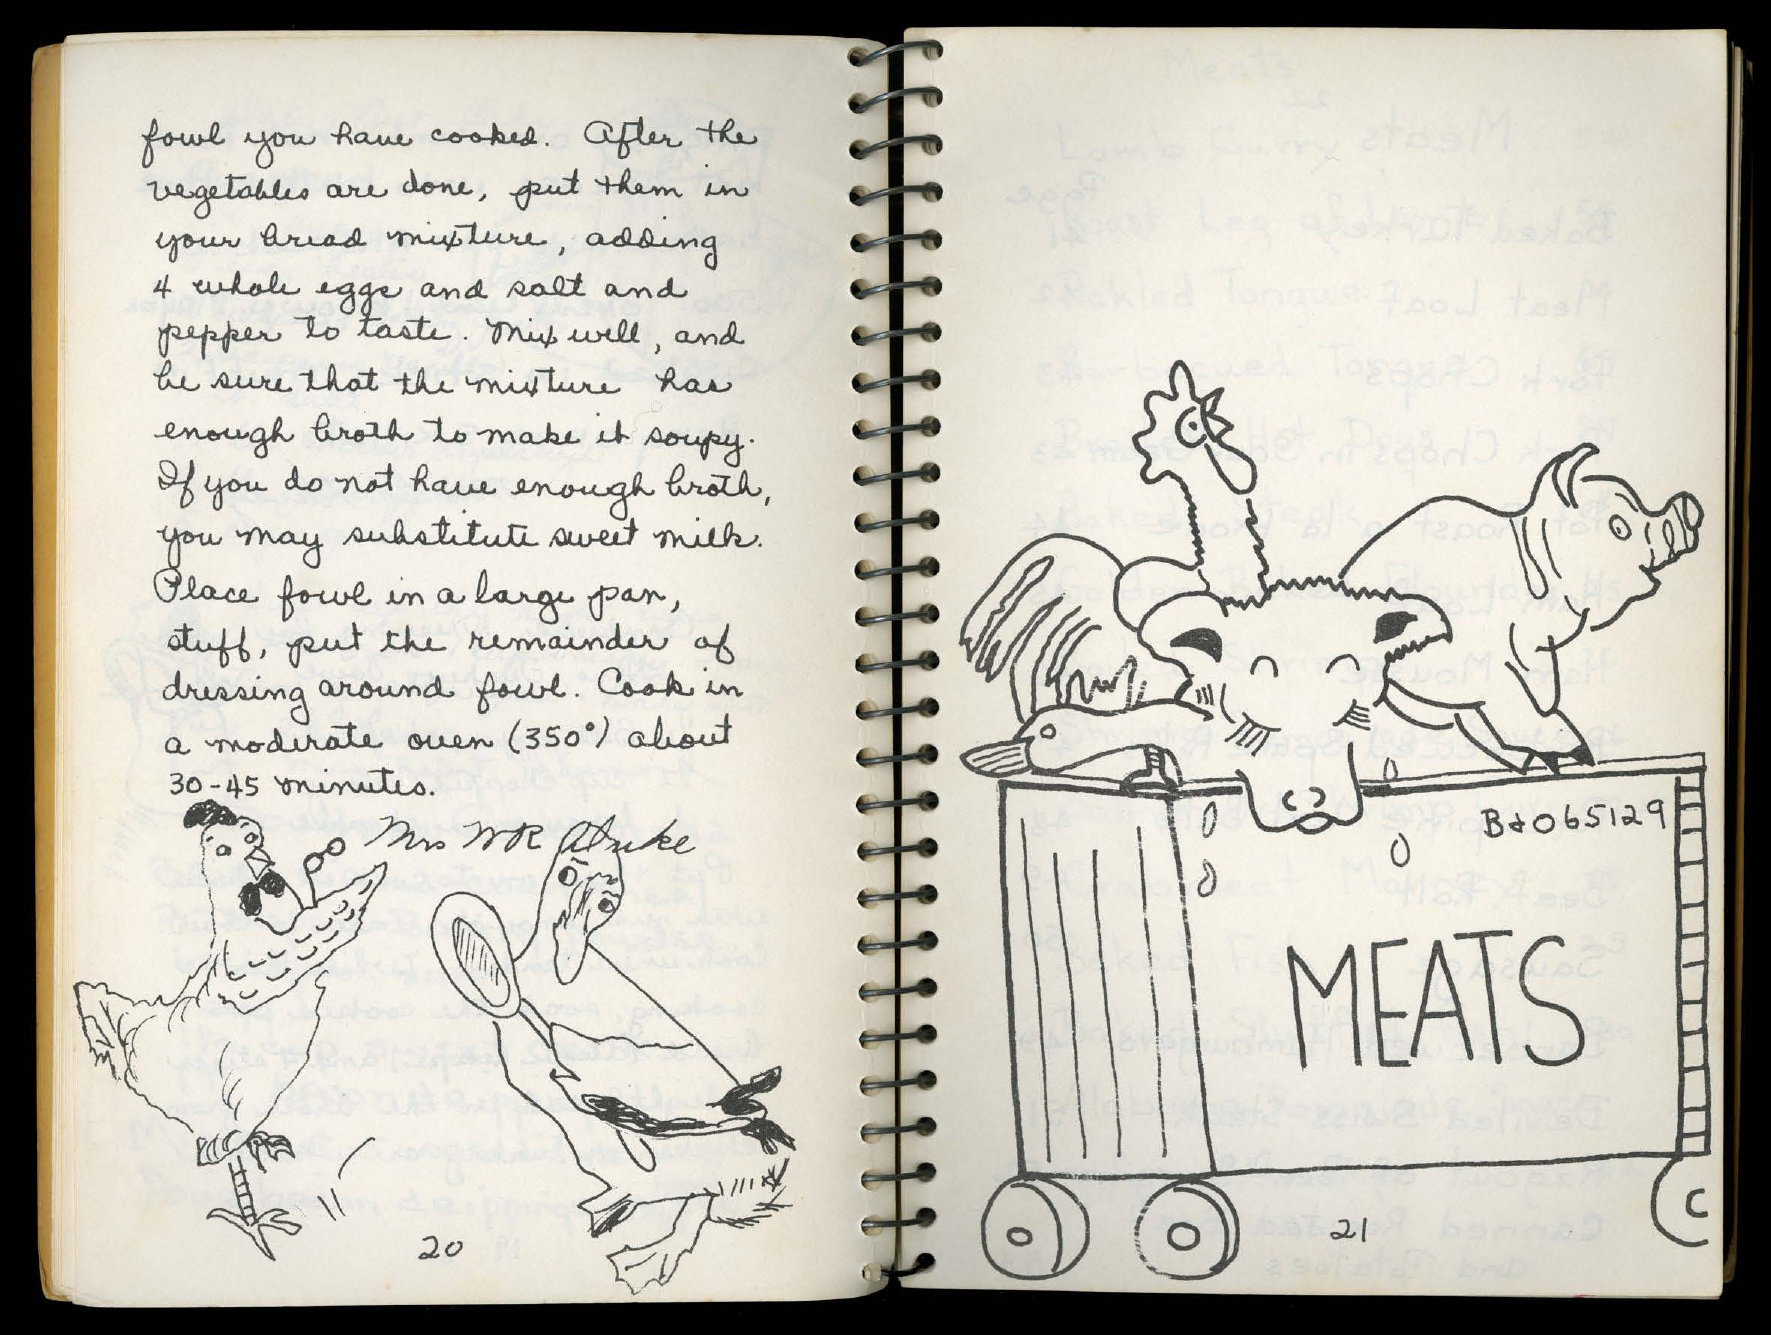 fowl you have cooked. After the
vegetables are done, put them in
your bread mixture, adding
4 whole eggs and salt and
pepper to taste. Mix well, and
be sure that the mixture has
enough broth to make it soupy.
If you do not have enough broth,
you may substitute sweet milk.
Place fowl in a large pan,
stuff, put the remainder of
dressing around fowl. Cook in
a moderate oven (350°) about
30-45 minutes.
Mrs WR
20
B&O65129
MEATS
21